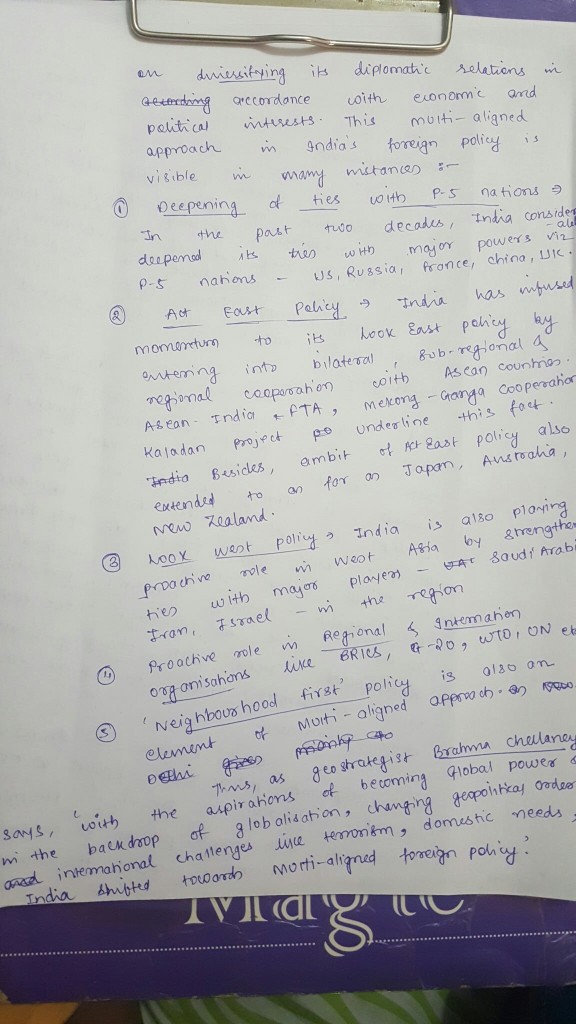 on diversifying its diplomatic relations in
according accordance with economic and
political interests. This multi-aligned
approach in India's foreign policy is
visible in many instances :-
① Deepening of ties with P-5 nations →
In the past two decades, India consider
-ably
deepened its ties with major powers viz
P-5 nations - US, Russia, France, China, UK.
② Act East Policy → India has infused
momentum to its Look East policy by
entering into bilateral, sub-regional &
regional cooperation with Asean countries.
Asean-India FTA, Mekong-Ganga Cooperation
Kaladan project underline this fact.
India Besides, ambit of Act East policy also
extended to as far as Japan, Australia,
New Zealand.
③ Look West policy → India is also playing
proactive role in West Asia by strengthen
ties with major players - UAE Saudi Arabi
Iran, Israel - in the region
④ Proactive role in Regional & Internation
organisations like BRICS, G-20, WTO, UN etc
⑤ 'Neighbourhood first' policy is also an
element of Multi-aligned approach.
Delhi gives priority
Thus, as geostrategist Brahma Chellaney
says, 'with the aspirations of becoming Global power &
in the backdrop of globalisation, changing geopolitical order
and international challenges like terrorism, domestic needs,
India shifted towards Multi-aligned foreign policy.'